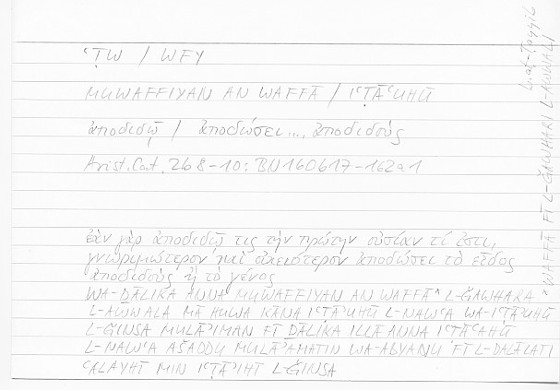 ʿṬW / WFY
MUWAFFIYAN AN WAFFĀ / IʿṬĀʾUHŪ
ἀποδιδῷ / ἀποδώσει.... ἀποδιδούς
Arist. Cat. 2b8-10: BN160b17-162a1
ἐὰν γὰρ ἀποδιδῷ τις τὴν πρώτην οὐσίαν τί ἐστι,
γνωριμώτερον καὶ οἰκειότερον ἀποδώσει τὸ εἶδος
ἀποδιδοὺς ἢ τὸ γένος
WA-ḎĀLIKA ANNA MUWAFFIYAN AN WAFFĀ* L-ǦAWHARA
L-AWWALA MĀ HUWA KĀNA IʿṬĀʾUHŪ L-NAWʿA WA-IʿṬĀʾUHŪ
L-ǦINSA MULĀʾIMAN FĪ ḎĀLIKA ILLĀ ANNA IʿṬĀʾAHŪ
L-NAWʿA AŠADDU MULĀʾAMATIN WA-ABYANU FĪ L-DALĀLATI
ʿALAYHI MIN IʿṬĀʾIHĪ L-ǦINSA
*WAFFĀ FĪ L-ǦAWHARI L-AWWALI